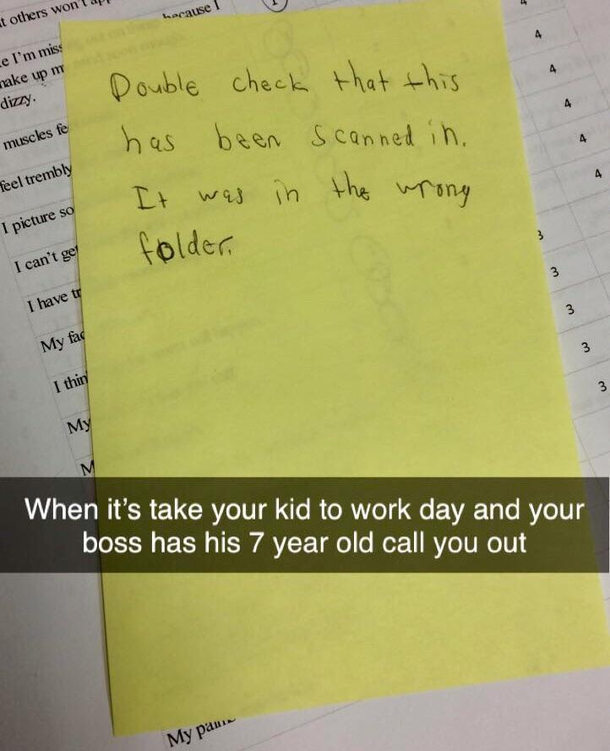 because I
Double check that this
has been scanned in.
It was in the wrong
folder.
dizzy.
muscles
feel trembly
I picture
I can't
I have
My
I
My
4
4
4
4
4
4
3
3
3
3
3
When it's take your kid to work day and your
boss has his 7 year old call you out
My